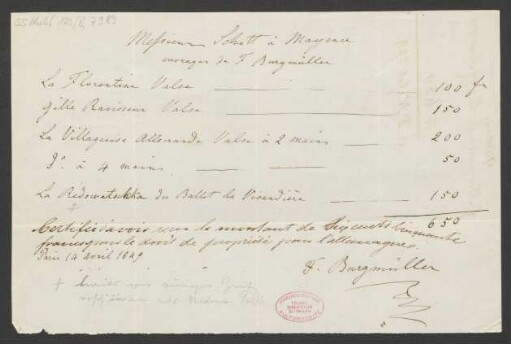 Messieurs Schott à Mayence
ouvrages de F Burgmüller
La Florentine Valse 100 fr
Gille Ravisseur Valse 150
La Villageoise Allemande Valse à 2 mains 200
do à 4 mains 50
La Redowatschka du Ballet la Vivandière 150
650
Certifié avoir reçu le montant de Six cents cinquante
francs pour le droit de propriété pour l'allemagne.
Paris 14 avril 1849
F. Burgmüller